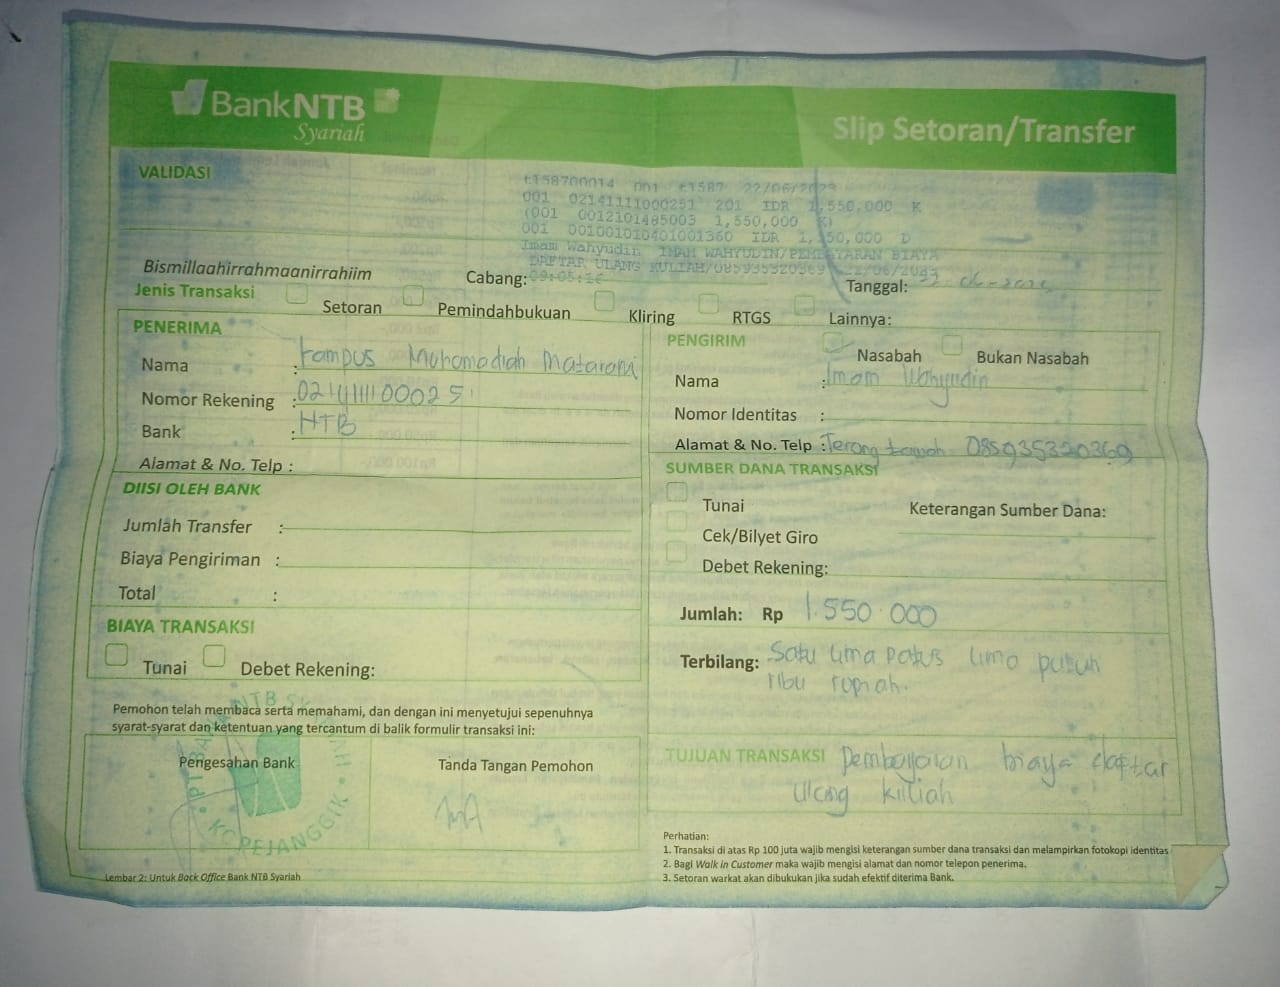 BankNTB
Syariah
Slip Setoran/Transfer
VALIDASI
t158700014 001 t1587 22/06/2023
001 02141111000251 201 IDR 1,550,000 K
(001 0012101485003 1,550,000 K)
001 001001010401001360 IDR 1,550,000 D
Imam Wahyudin IMAM WAHYUDIN/PEMBAYARAN BIAYA
DAFTAR ULANG KULIAH/085935320369
09:05:26
Bismillaahirrahmaanirrahiim
Cabang:
Tanggal:
Jenis Transaksi
Setoran
Pemindahbukuan
Kliring
RTGS
Lainnya:
PENERIMA
Nama : kampus Muhamadiah Mataram
Nomor Rekening : 02141111000251
Bank : NTB
Alamat & No. Telp :
PENGIRIM
Nasabah
Bukan Nasabah
Nama : Imam Wahyudin
Nomor Identitas :
Alamat & No. Telp : Terong tawah 085935320369
DIISI OLEH BANK
Jumlah Transfer :
Biaya Pengiriman :
Total :
SUMBER DANA TRANSAKSI
Tunai
Keterangan Sumber Dana:
Cek/Bilyet Giro
Debet Rekening:
BIAYA TRANSAKSI
Tunai
Debet Rekening:
Jumlah: Rp 1.550.000
Terbilang: Satu lima ratus lima puluh
ribu rupiah.
Pemohon telah membaca serta memahami, dan dengan ini menyetujui sepenuhnya
syarat-syarat dan ketentuan yang tercantum di balik formulir transaksi ini:
Pengesahan Bank
Tanda Tangan Pemohon
PT BANK NTB SYARIAH
KC PEJANGGIK
TUJUAN TRANSAKSI Pembayaran biaya daftar
ulang kuliah
Perhatian:
1. Transaksi di atas Rp 100 juta wajib mengisi keterangan sumber dana transaksi dan melampirkan fotokopi identitas
2. Bagi Walk in Customer maka wajib mengisi alamat dan nomor telepon penerima.
3. Setoran warkat akan dibukukan jika sudah efektif diterima Bank.
Lembar 2: Untuk Back Office Bank NTB Syariah